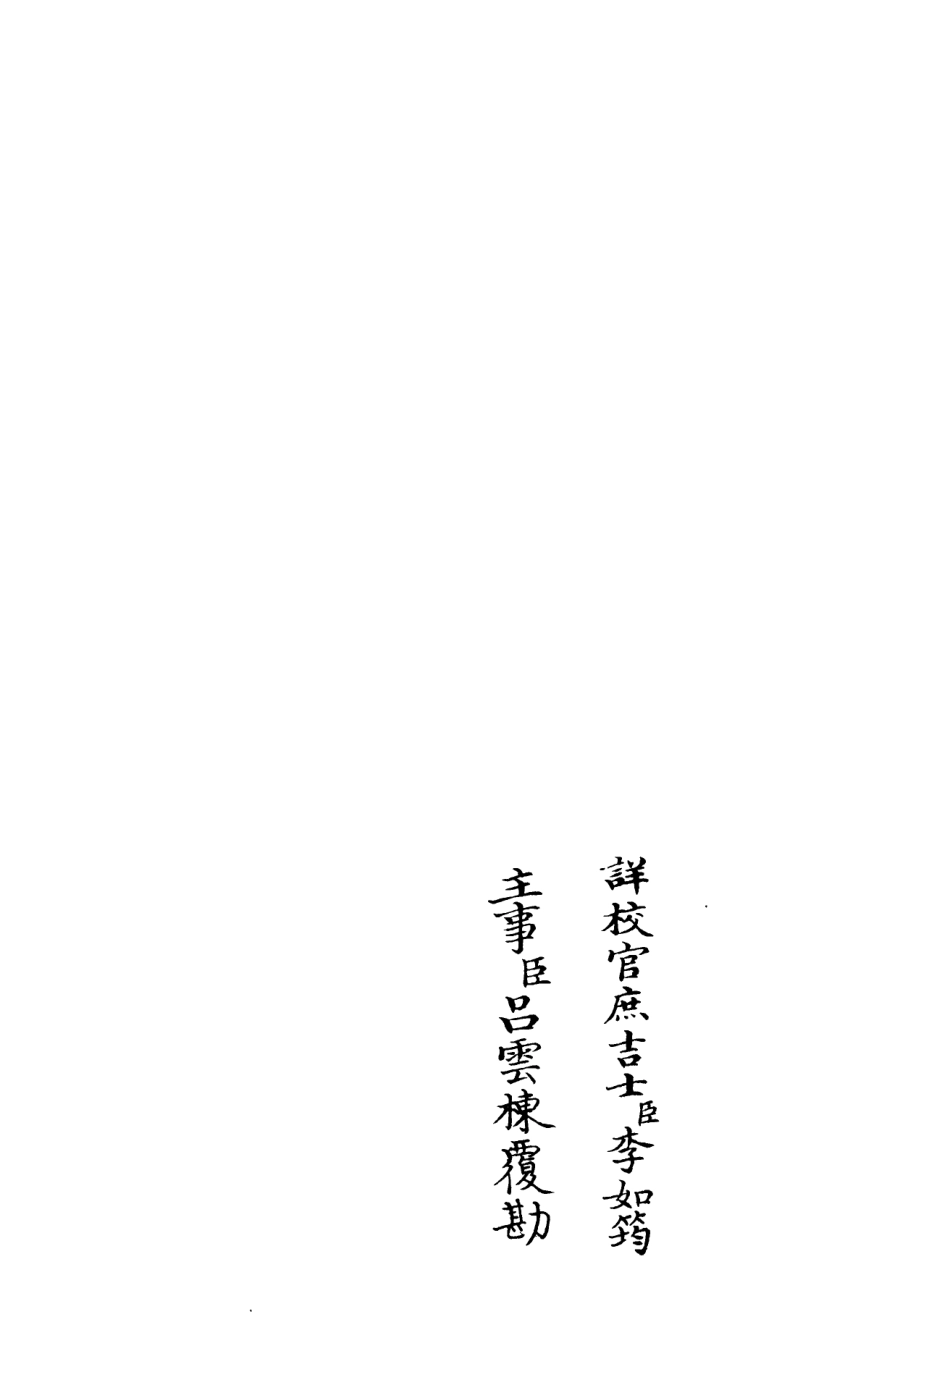 詳校官庶吉士臣李如筠
主事臣呂雲棟覆勘